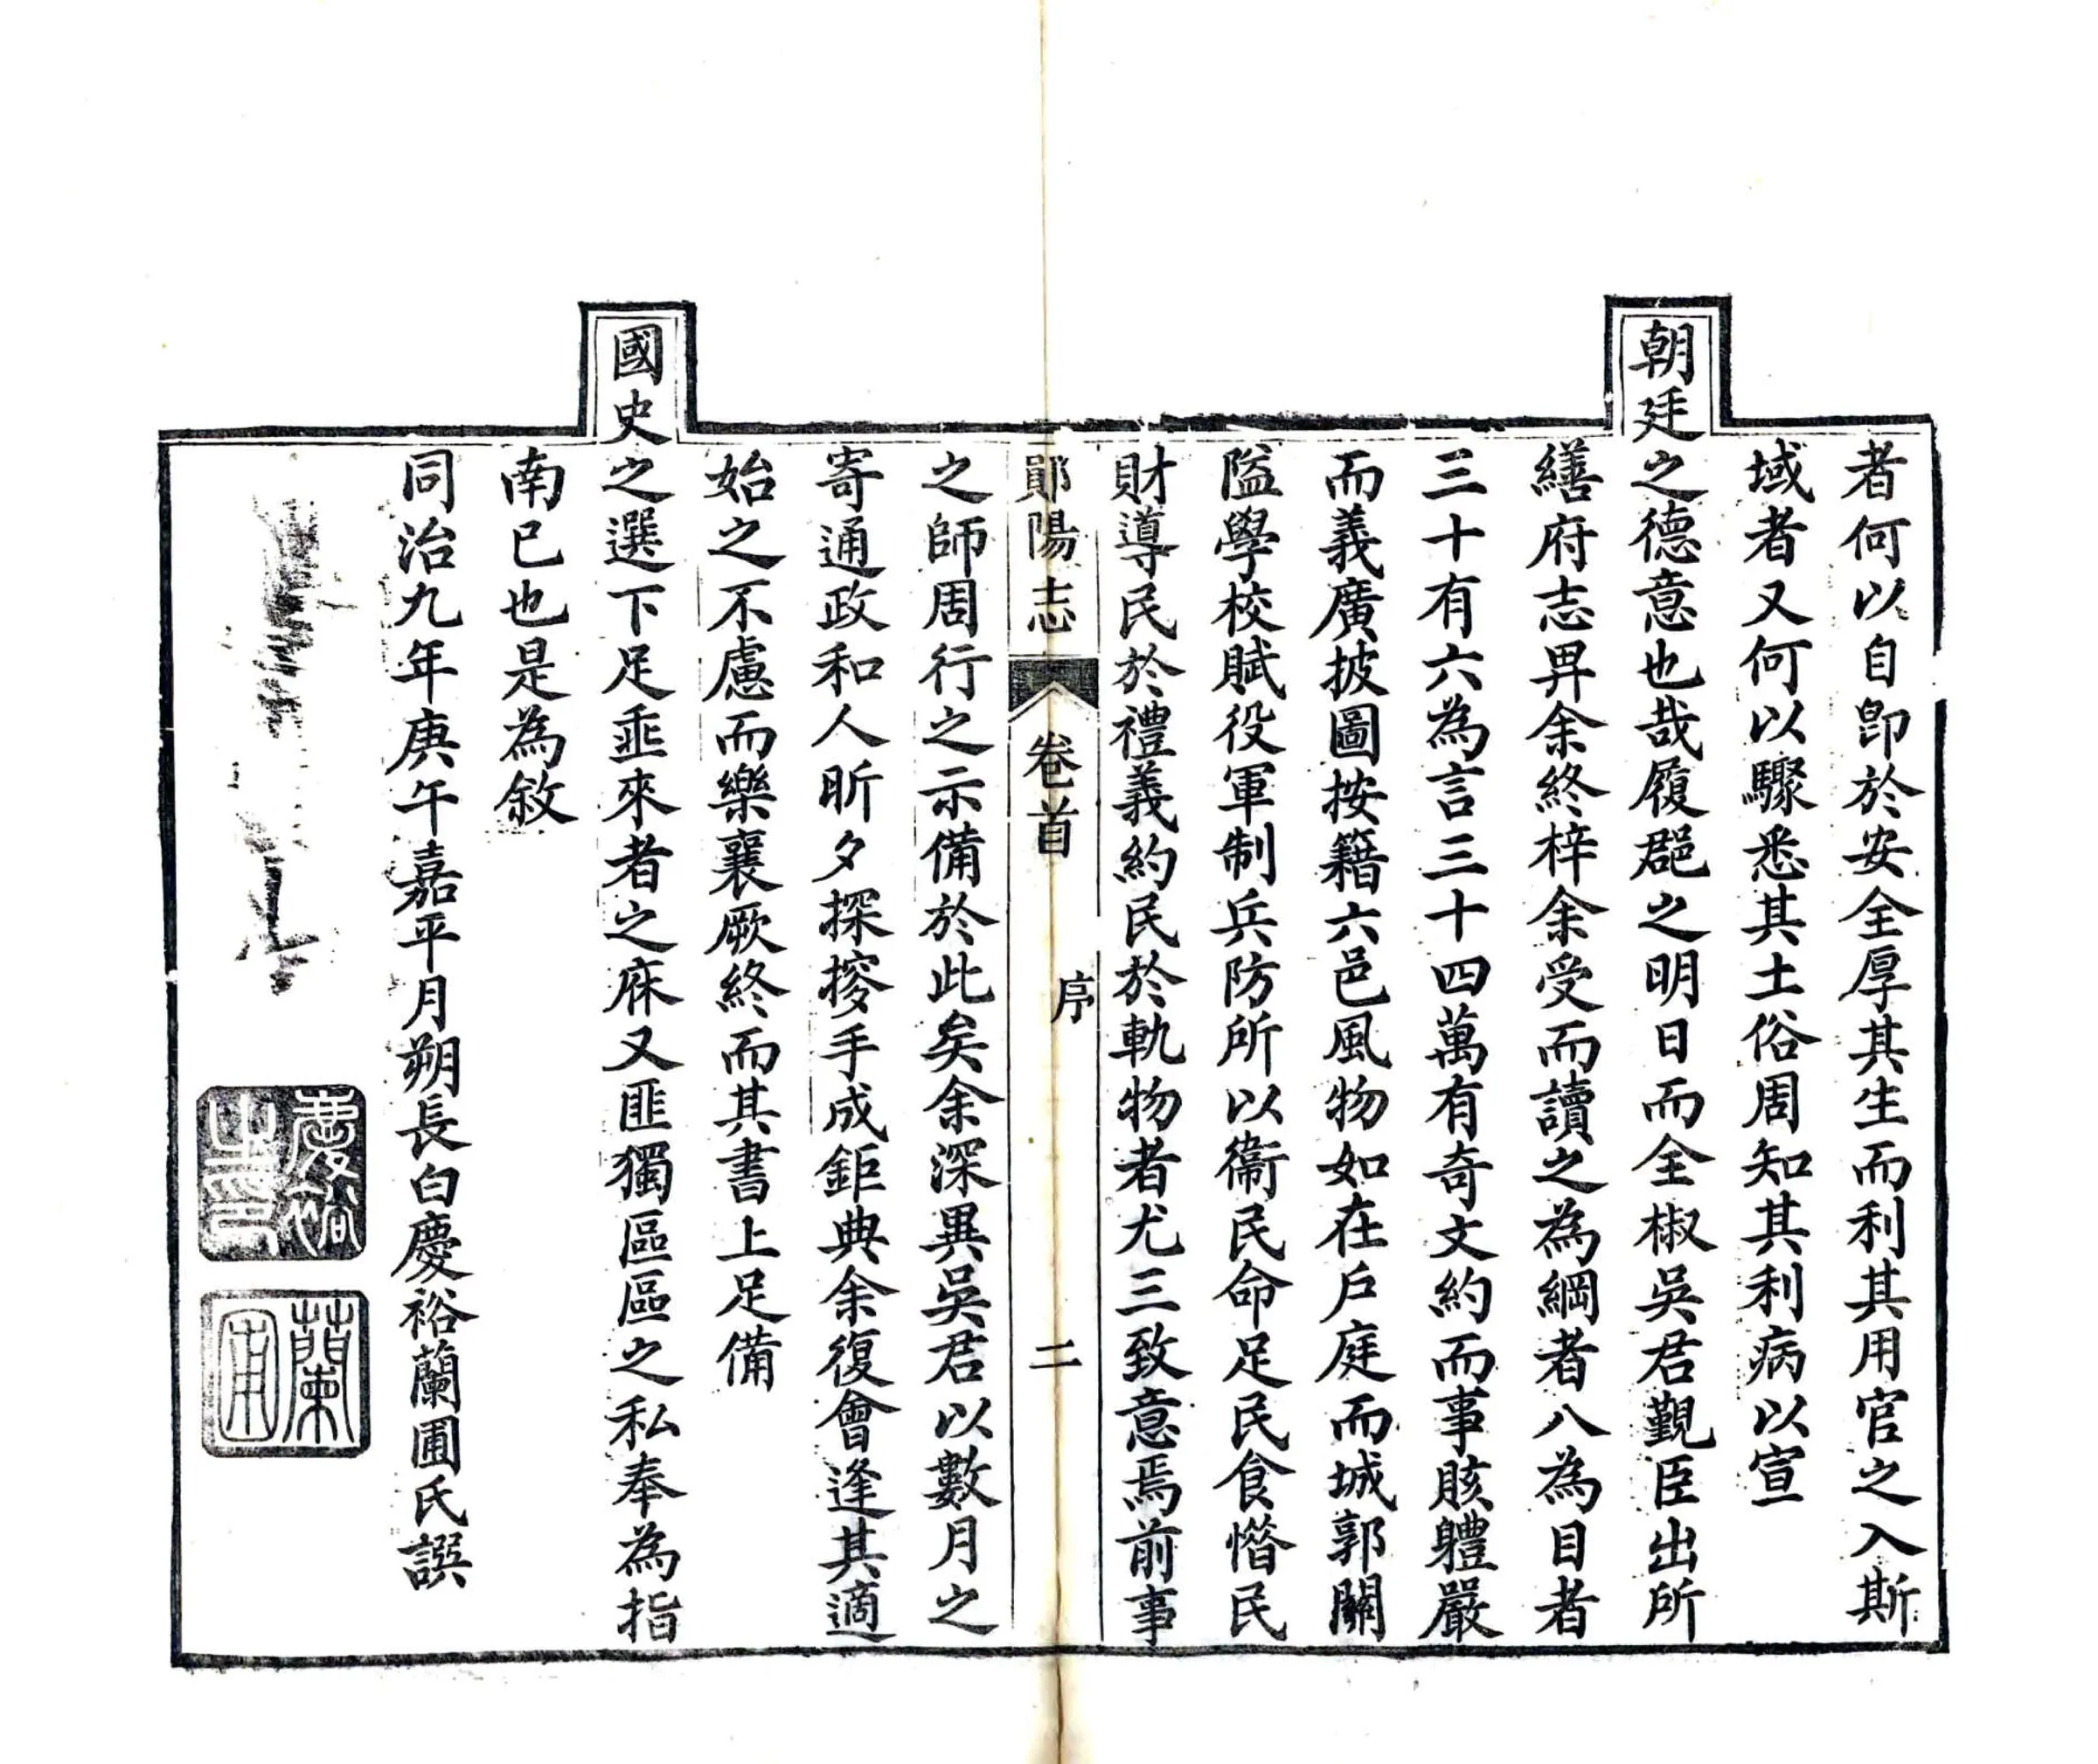 者何以自卽於安全厚其生而利其用官之入斯
域者又何以驟悉其土俗周知其利病以宣
朝廷之德意也哉履郡之明日而全椒吳君覲臣出所
繕府志畀余終梓余受而讀之為綱者八為目者
三十有六為言三十四萬有奇文約而事賅軆嚴
而義廣披圖按籍六邑風物如在戶庭而城郭關
隘學校賦役軍制兵防所以衞民命足民食惜民
財導民於禮義約民於軌物者尤三致意焉前事
鄖陽志
卷首
序
二
之師周行之示備於此矣余深異吳君以數月之
寄通政和人昕夕探揅手成鉅典余復會逢其適
始之不慮而樂襄厥終而其書上足備
國史之選下足埀來者之庥又匪獨區區之私奉為指
南已也是為敘
同治九年庚午嘉平月朔長白慶裕蘭圃氏譔
慶裕之印
蘭圃